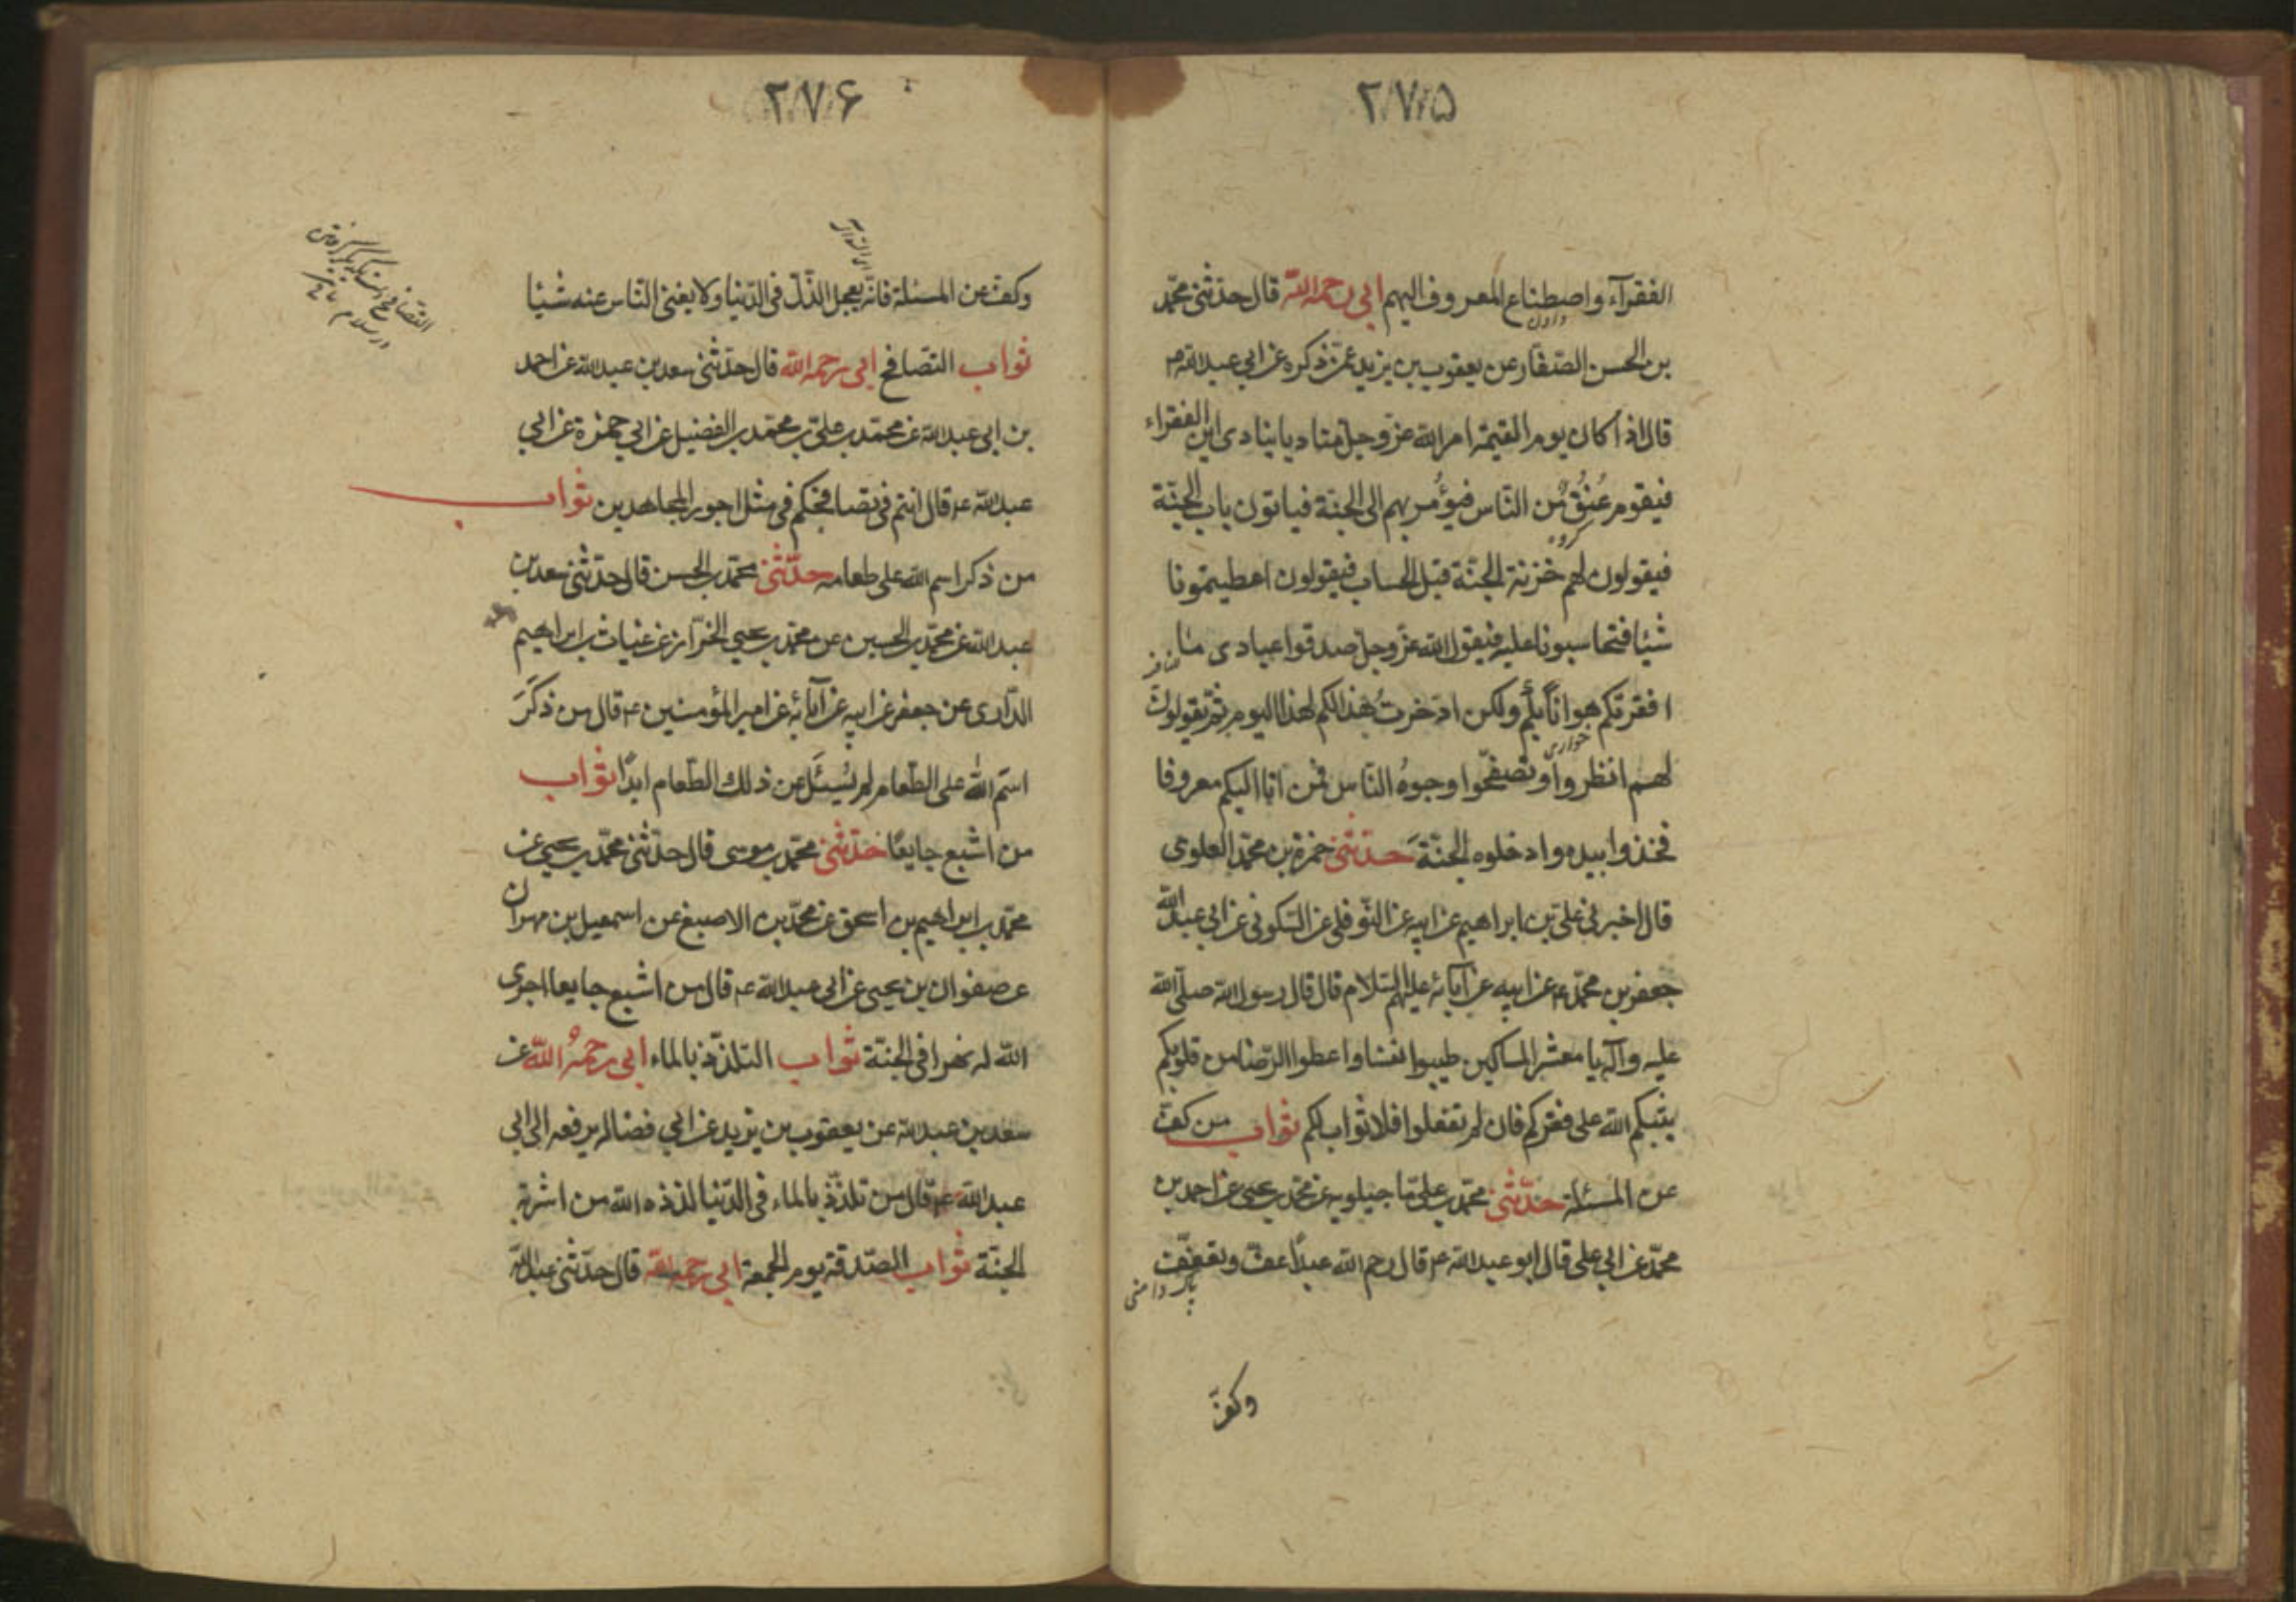 ۲۷۵
الفقرآء واصطناع المعروف اليهم ابى رحمه الله قال حدّثنى محمّد
دادن
بن الحسن الصفّار عن يعقوب بن يزيد عمّن ذكره عن ابي عبد الله ع
قال اذا كان يوم القيمة امر الله عزّ وجلّ مناديا ينادى اين الفقراء
فيقوم عُنُقٌ من النّاس فيؤمر بهم الى الجنة فياتون باب الجنّة
كروه
فيقولون لهم خزنة الجنّة قبل الحساب فيقولون اعطيتمونا
شيئا فتحاسبونا عليه فيقول الله عزّ وجلّ صدقوا عبادى ما
افقرتكم هواناً بكم ولكن ادّخرتُ هذا لكم لهذا اليوم ثمّ يقول
خوارى
لهم انظروا وتصفّحوا وجوهُ النّاس فمن اتا اليكم معروفا
فخذوا بيده وادخلوه الجنّةَ حدّثنى حمزة بن محمّد العلوى
قال اخبرنى على بن ابراهيم عن ابيه عن النّوفلى عن السّكونى عن ابي عبد الله
جعفر بن محمّد ع عن ابيه عن آبائه عليهم السّلام قال قال رسول الله صلّى الله
عليه وآله يا معشر المساكين طيبوا نفسا واعطوا الرّضا من قلوبكم
يثبكم الله على فقركم فان لم تفعلوا فلا ثواب لكم ثواب من كفّ
عن المسئلة حدّثنى محمّد بن علىّ ماجيلويه عن محمّد بن يحيى عن احمد بن
محمّد عن ابي على قال ابو عبد الله ع قال رحم الله عبداً عفّ وتعفّف
پاك دامنى
وكفّ
۲۷۶
وكفّ عن المسئلة فانّه يعجل الذّلّ فى الدّنيا ولا يغنى النّاس عنه شيئا
ثواب التصافح ابى رحمه الله قال حدّثنى سعد بن عبد الله عن احمد
بن ابى عبد الله عن محمّد بن علىّ عن محمّد بن الفضيل عن ابي حمزة عن ابي
عبد الله ع قال انتم فى تصافحكم فى مثل اجور المجاهدين ثواب
من ذكر اسم الله على طعامه حدّثنى محمّد بن الحسن قال حدّثنى سعد بن
عبد الله عن محمّد بن الحسين عن محمّد بن يحيى الخزّاز عن غياث بن ابراهيم
الدّارى عن جعفر عن ابيه عن آبائه عن امير المؤمنين ع قال من ذكَرَ
اسم الله على الطعام لم يُسئَل عن ذلك الطّعام ابدًا ثواب
من اشبع جايعًا حدّثنى محمّد بن موسى قال حدّثنى محمّد بن يحيى عن
محمّد بن ابراهيم بن اسحق عن محمّد بن الاصبغ عن اسمعيل بن مهران
عن صفوان بن يحيى عن ابى عبد الله ع قال من اشبع جايعا اجرى
الله له نهرا فى الجنّة ثواب التلذّذ بالماء ابى رحمهُ الله عن
سعد بن عبد الله عن يعقوب بن يزيد عن ابي فضالم يرفعه الى ابى
عبد الله ع قال من تلذّذ بالماء فى الدّنيا لذذه الله من اشربة
الجنّة ثواب الصّدقة يوم الجمعة ابى رحمه الله قال حدّثنى عبد الله